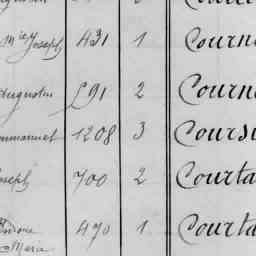 Mie Joseph 431 1 Courn
Augustin 591 2 Courn
mmanuel 1208 3 Coursi
oseph 700 2 Courta
Isidore 470 1 Courta
Marie